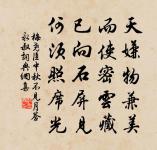 天嫌物兼美
而使密雲藏
已向石屏見
何須照席光
梅堯臣中秋不見月答
永叔